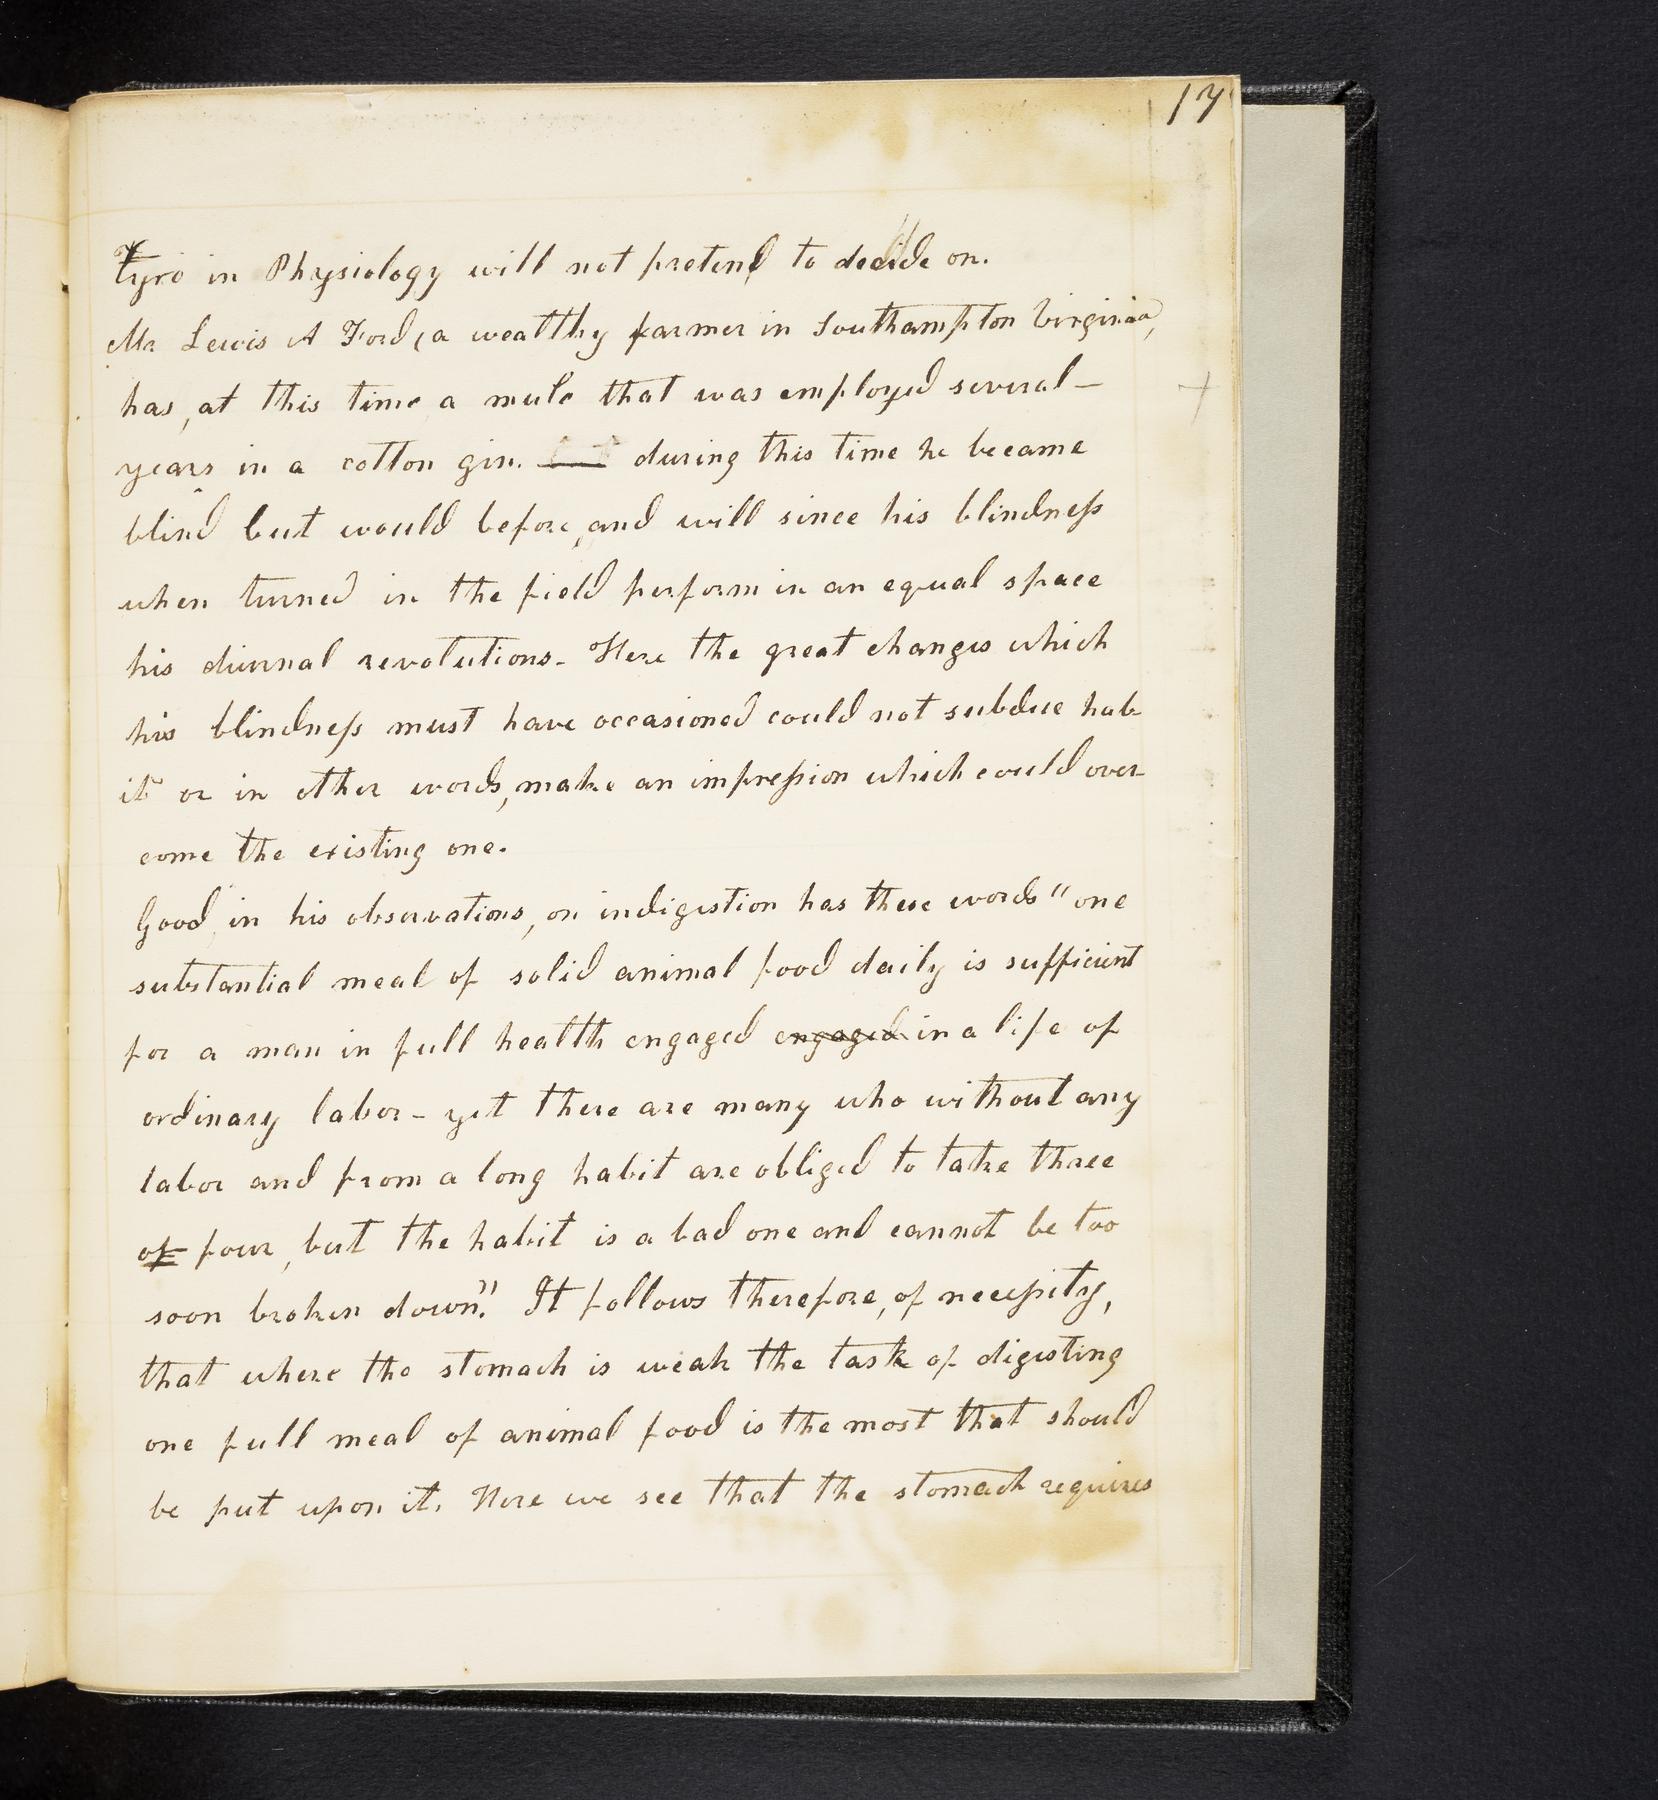 17
Tyro in Physiology will not pretend to decide on.
Mr Lewis A Ford (a wealthy farmer in Southampton Virginia,
has, at this time a mule that was employed several—
years in a cotton gin. during this time he became
blind but would before, and will since his blindness
when turned in the field perform in an equal space
his diurnal revolutions. Here the great changes which
his blindness must have occasioned could not subdue hab-
it or in other words, make an impression which could over-
come the existing one.
Good, in his observations, on indigestion has these words "one
substantial meal of solid animal food daily is sufficient
for a man in full health engaged engaged in a life of
ordinary labor – yet there are many who without any
labor and from a long habit are obliged to take three
or four, but the habit is a bad one and cannot be too
soon broken down". It follows therefore, of necessity,
that where the stomach is weak the task of digesting
one full meal of animal food is the most that should
be put upon it. Here we see that the stomach requires